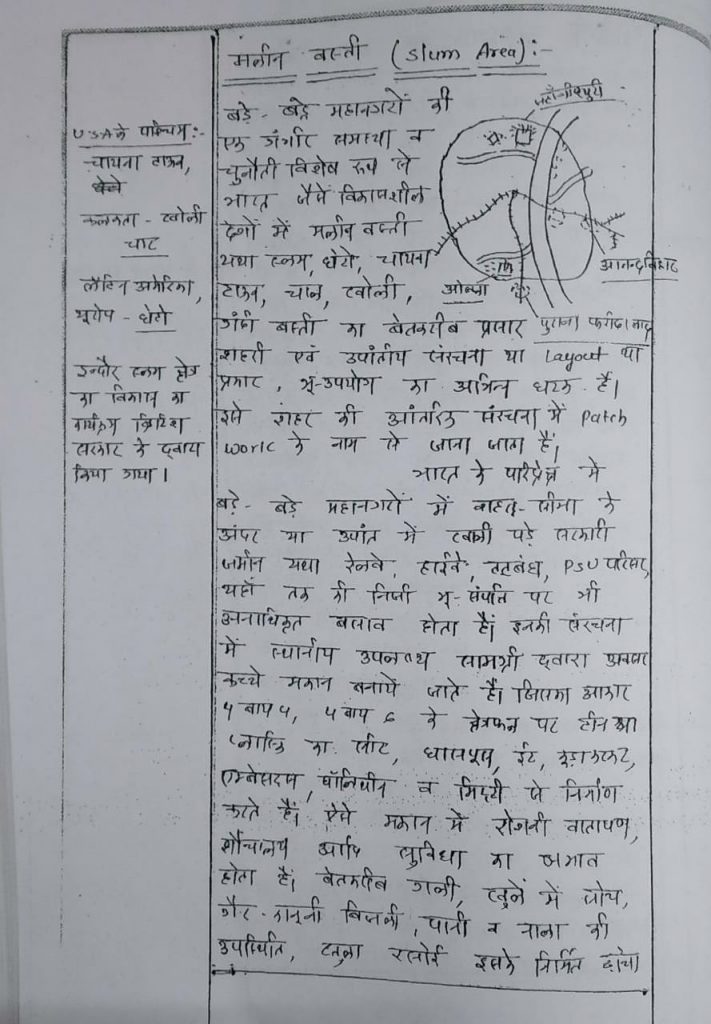 मलीन बस्ती (Slum Area):-
बड़े - बड़े महानगरों की
एक गंभीर समस्या व
चुनौती विशेष रूप से
भारत जैसे विकासशील
देशों में मलीन बस्ती
यथा स्लम, घेटो, चायना
टाऊन, चाल, खोली,
गंदी बस्ती का बेतरतीब प्रसार
शहरी एवं उपांतीय संरचना या Layout या
प्रकार, भू-उपयोग का अभिन्न घटक है।
इसे शहर की आंतरिक संरचना में Patch
work के नाम से जाना जाता है।
भारत के परिप्रेक्ष में
बड़े - बड़े महानगरों में वाह्य-सीमा के
अंदर या उपांत में खाली पड़े सरकारी
जमीन यथा रेलवे, हाईवे, तटबंध, PSU परिसर,
यहाँ तक की निजी भू-संपत्ति पर भी
अनाधिकृत बसाव होता है। इनकी संरचना
में स्थानीय उपलब्ध सामग्री द्वारा
कच्चे मकान बनायें जाते हैं। जिसका आकार
4 बाय 4, 4 बाय 6 के क्षेत्रफल पर टीन
का सीट, घासफूस, ईंट, कूड़ाकरकट,
एस्बेसटस, पॉलिथीन व मिट्टी से निर्माण
करते हैं। ऐसे मकान में रोशनी वातायण,
शौचालय आदि सुविधा का अभाव
होता है। बेतरतीब गली, खुले में शौच,
गैर-कानूनी बिजली, पानी व नाला की
उपस्थिति, रसोई इसके निर्मित ढांचा
जहाँगीरपुरी
आनन्दविहार
ओखला
पुराना फरीदाबाद
USA के पश्चिम:-
चायना टाऊन,
कलकता - खोली
चाट
लैटिन अमेरिका,
यूरोप - घेटो
इन्दौर स्लम क्षेत्र
का विकास का
कार्यक्रम ब्रिटिश
सरकार के द्वारा
किया गया।